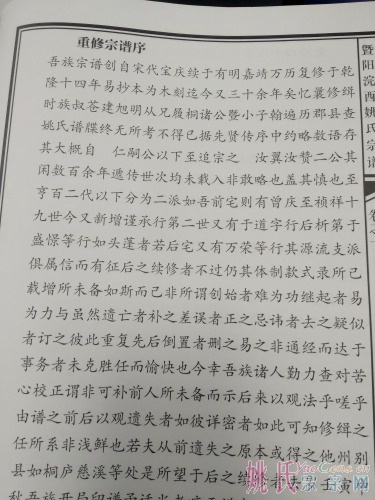 重修宗谱序
吾族宗谱创自宋代宝庆续于有明嘉靖万历复修于乾
隆十四年易抄本为木刻迄今又三十余年矣忆曩修缉
时族叔苍建旭明从兄履桐诸公暨小子翰遍历郡县查
姚氏谱牒终无所考不得已据先贤传序中约略数语存
其大概自 仁嗣公以下至追宗之 汝翼汝赞二公其
闲数百余年遗传世次均未载入非敢略也盖其慎也至
亨百二代以下分为二派如吾前宅则有曾庆至祯祥十
九世今又新增谨承行第二世又有于道字行后析第于
盛惊等行如头蓬者若后宅又有万荣等行其源流支派
俱属信而有征后之续修者不过仍其体制款式录所已
载增所未备如斯而已非所谓创始者难为功继起者易
为力与虽然遗亡者补之差误者正之忌讳者去之疑似
者订之彼此重复先后倒置者删之易之非通经而达于
事务者未克胜任而愉快也今幸吾族诸人勤力查对苦
心校正谓非可补前人所未备而示后来以观法乎嗟乎
由谱之前后以观遗失者如彼详密者如此可知修缉之
任所系非浅鲜也若夫从前遗失之原本或得之他州别
县如桐庐慈溪等处是所望于后之
暨阳浣西姚氏宗谱
姚氏